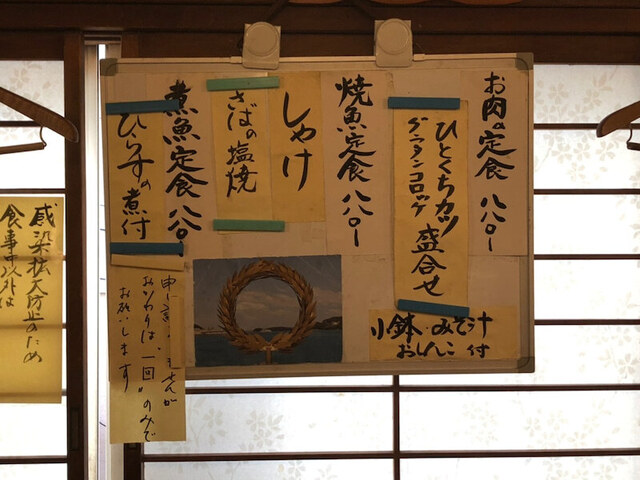 お肉の定食 八八〇ー
ひとくちカツ
グラタンコロッケ
盛合せ
焼魚定食 八八〇ー
しゃけ
さばの塩焼
煮魚定食 八八〇ー
ひらすの煮付
小鉢・みそ汁
おしんこ 付
申し訳ありませんが
おかわりは、一回のみで
お願いします
感染拡大防止のため
食事中以外は